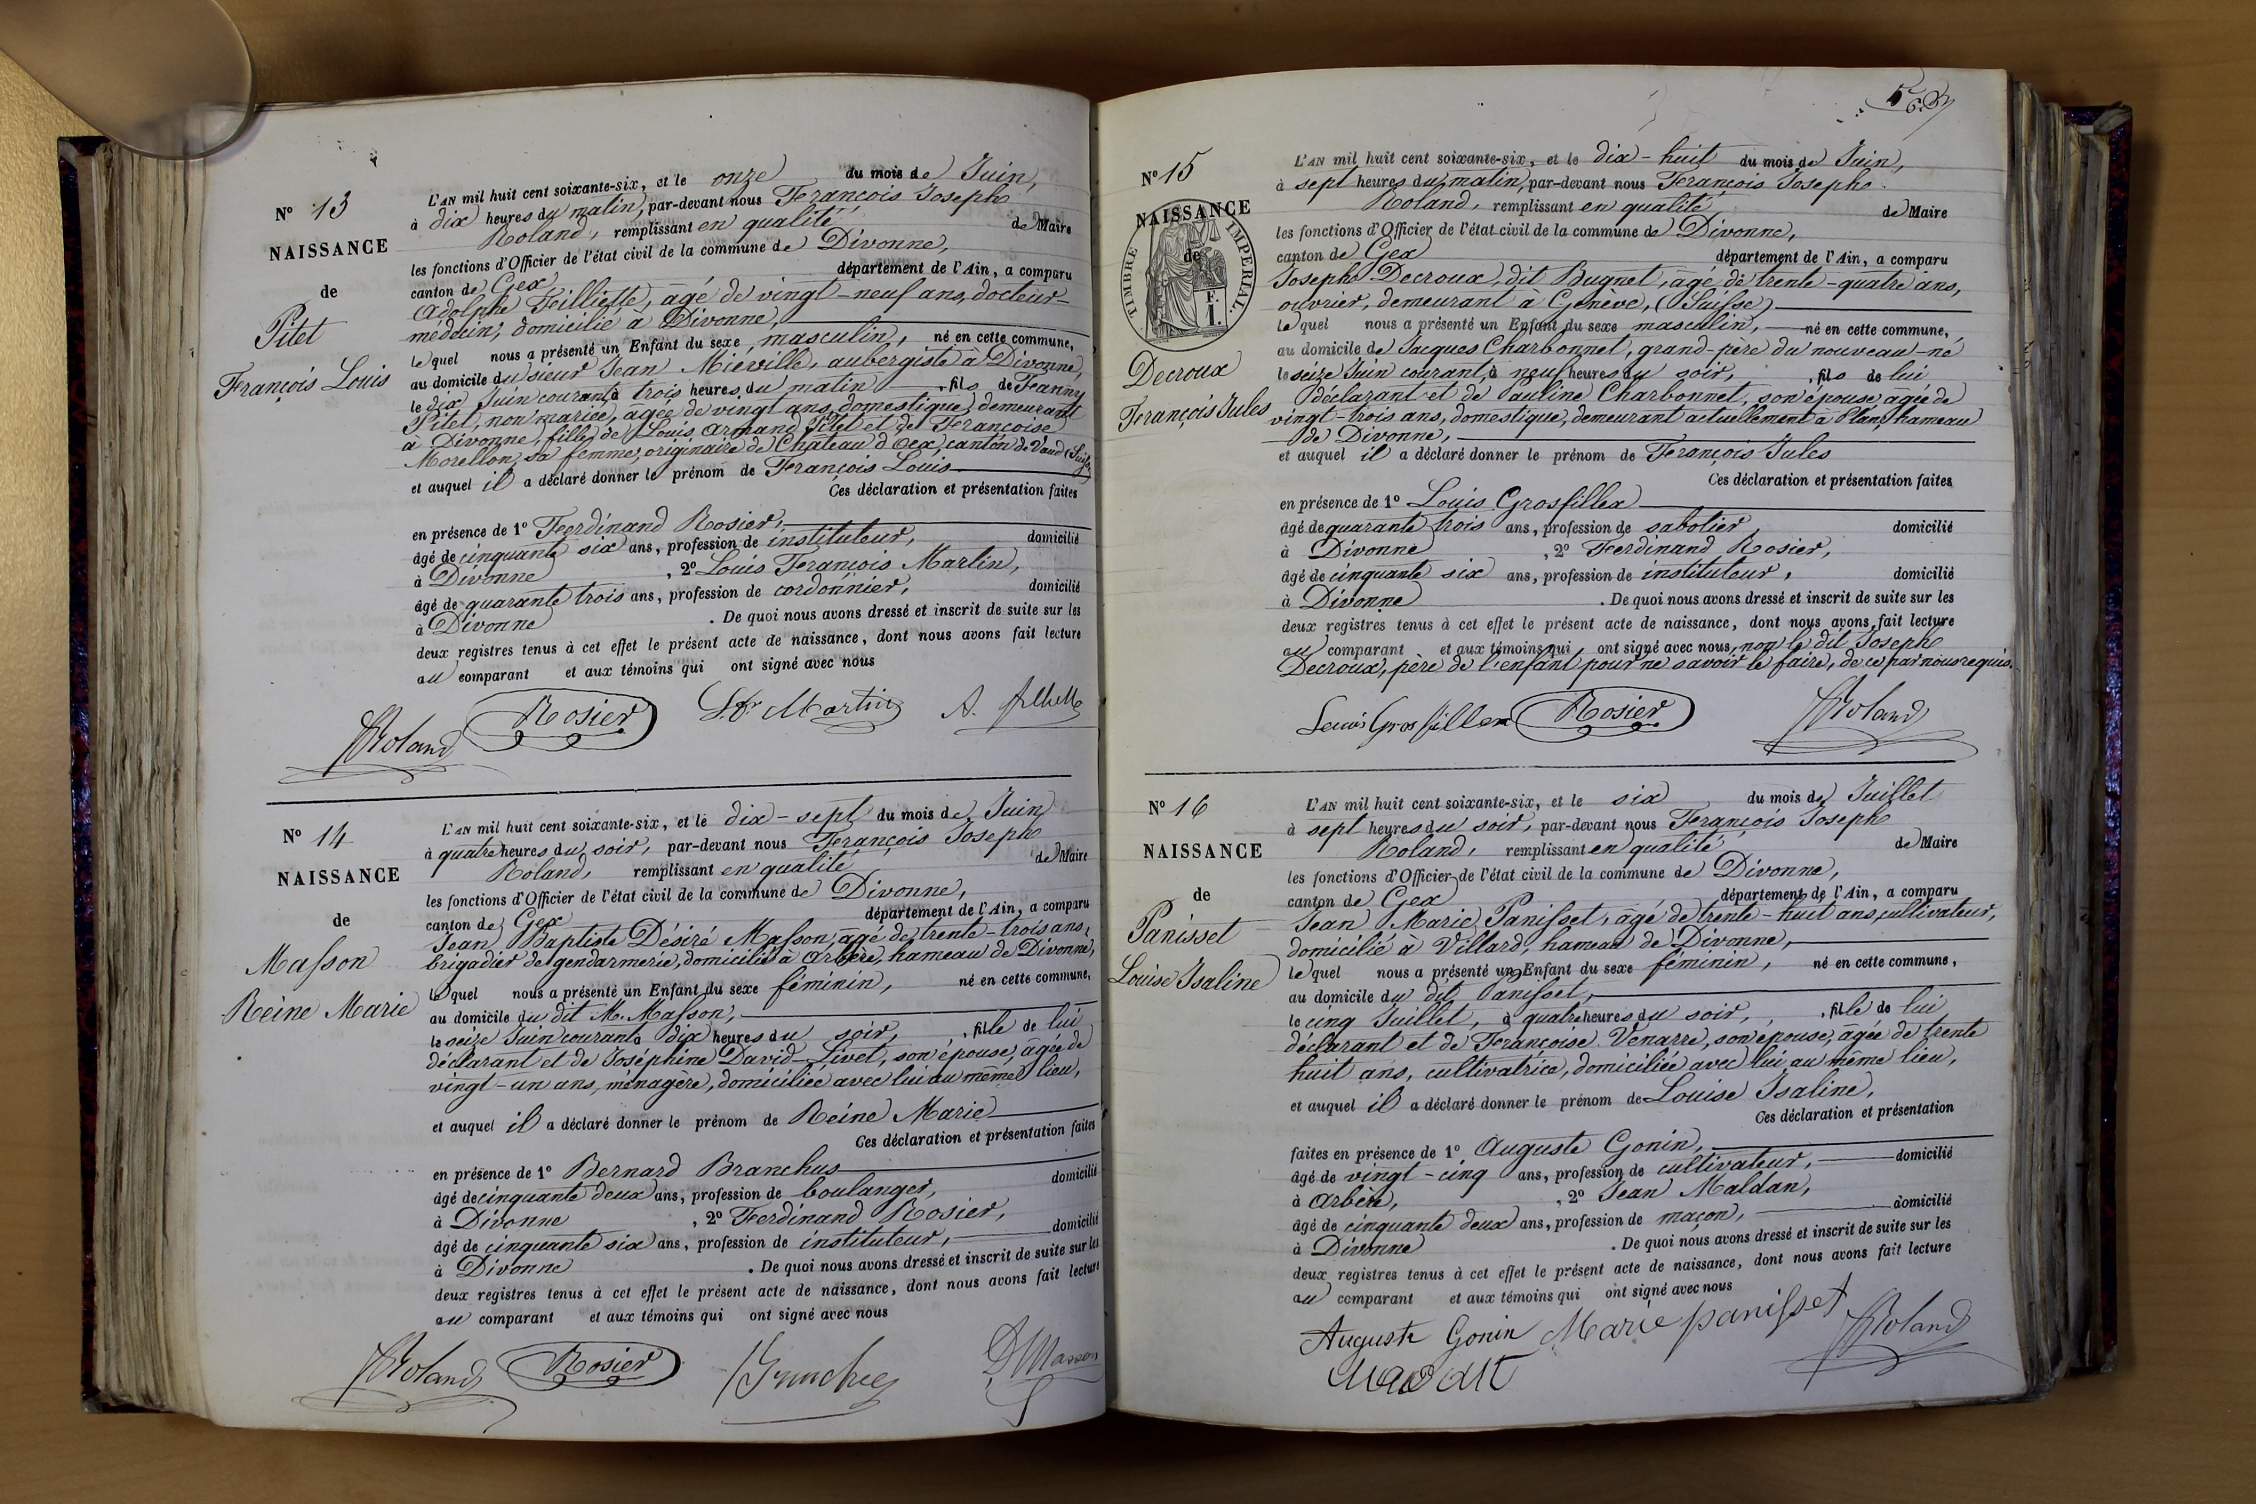 N° 13
NAISSANCE
de
Pitet
François Louis
L'AN mil huit cent soixante-six, et le onze du mois de Juin,
à dix heures du matin, par-devant nous François Joseph
Roland, remplissant en qualité de Maire
les fonctions d'Officier de l'état civil de la commune de Divonne,
canton de Gex, département de l'Ain, a comparu
Adolphe Feilliette, âgé de vingt-neuf ans, docteur-
médecin, domicilié à Divonne,
lequel nous a présenté un Enfant du sexe masculin, né en cette commune,
au domicile du sieur Jean Miéville, aubergiste à Divonne,
le dix Juin courant, à trois heures du matin, fils de Jeanny
Pitet, non mariée, agée de vingt ans, domestique, demeurant
à Divonne, fille de Louis Armand Pitet et de Françoise
Morellon, sa femme, originaire de Chateau d'Oex, canton de Vaud (Suisse)
et auquel il a déclaré donner le prénom de François Louis
Ces déclaration et présentation faites
en présence de 1° Ferdinand Rosier,
âgé de cinquante six ans, profession de instituteur, domicilié
à Divonne, 2° Louis François Martin,
âgé de quarante trois ans, profession de cordonnier, domicilié
à Divonne. De quoi nous avons dressé et inscrit de suite sur les
deux registres tenus à cet effet le présent acte de naissance, dont nous avons fait lecture
au comparant et aux témoins qui ont signé avec nous
FJRoland Rosier L. Fr Martin A.
N° 14
NAISSANCE
de
Masson
Reine Marie
L'AN mil huit cent soixante-six, et le dix-sept du mois de Juin
à quatre heures du soir, par-devant nous François Joseph
Roland, remplissant en qualité de Maire
les fonctions d'Officier de l'état civil de la commune de Divonne,
canton de Gex département de l'Ain, a comparu
Jean Baptiste Désiré Masson, âgé de trente-trois ans,
brigadier de gendarmerie, domicilié à Arbère, hameau de Divonne,
lequel nous a présenté un Enfant du sexe féminin, né en cette commune,
au domicile du dit M. Masson,
le seize Juin courant à dix heures du soir, fille de lui
déclarant et de Joséphine David-Livet, son épouse, âgée de
vingt-un ans, ménagère, domiciliée avec lui au même lieu,
et auquel il a déclaré donner le prénom de Reine Marie
Ces déclaration et présentation faites
en présence de 1° Bernard Branchus
âgé de cinquante deux ans, profession de boulanger, domicilié
à Divonne, 2° Ferdinand Rosier,
âgé de cinquante six ans, profession de instituteur, domicilié
à Divonne. De quoi nous avons dressé et inscrit de suite sur les
deux registres tenus à cet effet le présent acte de naissance, dont nous avons fait lecture
au comparant et aux témoins qui ont signé avec nous
FJRoland Rosier DMasson
N° 15
NAISSANCE
de
TIMBRE IMPERIAL
F.
1.
Decroux
François Jules
L'AN mil huit cent soixante-six, et le dix-huit du mois de Juin,
à sept heures du matin, par-devant nous François Joseph
Roland, remplissant en qualité de Maire
les fonctions d'Officier de l'état civil de la commune de Divonne,
canton de Gex département de l'Ain, a comparu
Joseph Decroux, dit Bugnet, âgé de trente-quatre ans,
ouvrier, demeurant à Genève, (Suisse)
lequel nous a présenté un Enfant du sexe masculin, né en cette commune,
au domicile de Jacques Charbonnet, grand-père du nouveau-né
le seize Juin courant, à neuf heures du soir, fils de lui
déclarant et de Pauline Charbonnet, son épouse agée de
vingt-trois ans, domestique, demeurant actuellement à Plan, hameau
de Divonne,
et auquel il a déclaré donner le prénom de François Jules
Ces déclaration et présentation faites
en présence de 1° Louis Grosfillex
âgé de quarante trois ans, profession de sabotier, domicilié
à Divonne, 2° Ferdinand Rosier,
âgé de cinquante six ans, profession de instituteur, domicilié
à Divonne. De quoi nous avons dressé et inscrit de suite sur les
deux registres tenus à cet effet le présent acte de naissance, dont nous avons fait lecture
au comparant et aux témoins qui ont signé avec nous, non le dit Joseph
Decroux, père de l'enfant pour ne savoir le faire, de ce par nous requis.
Louis Grosfillex Rosier FJRoland
N° 16
NAISSANCE
de
Panisset
Louise Isaline
L'AN mil huit cent soixante-six, et le six du mois de Juillet
à sept heures du soir, par-devant nous François Joseph
Roland, remplissant en qualité de Maire
les fonctions d'Officier de l'état civil de la commune de Divonne,
canton de Gex département de l'Ain, a comparu
Jean Marie Panisset, âgé de trente-huit ans, cultivateur,
domicilié à Villard, hameau de Divonne,
lequel nous a présenté un Enfant du sexe féminin, né en cette commune,
au domicile du dit Panisset,
le cinq Juillet, à quatre heures du soir, fille de lui
déclarant et de Françoise Venarre, son épouse, âgée de trente
huit ans, cultivatrice, domiciliée avec lui au même lieu,
et auquel il a déclaré donner le prénom de Louise Isaline,
Ces déclaration et présentation
faites en présence de 1° Auguste Gonin,
âgé de vingt-cinq ans, profession de cultivateur, domicilié
à Arbère, 2° Jean Maldan,
âgé de cinquante deux ans, profession de maçon, domicilié
à Divonne. De quoi nous avons dressé et inscrit de suite sur les
deux registres tenus à cet effet le présent acte de naissance, dont nous avons fait lecture
au comparant et aux témoins qui ont signé avec nous
Auguste Gonin Marie panisset FJRoland